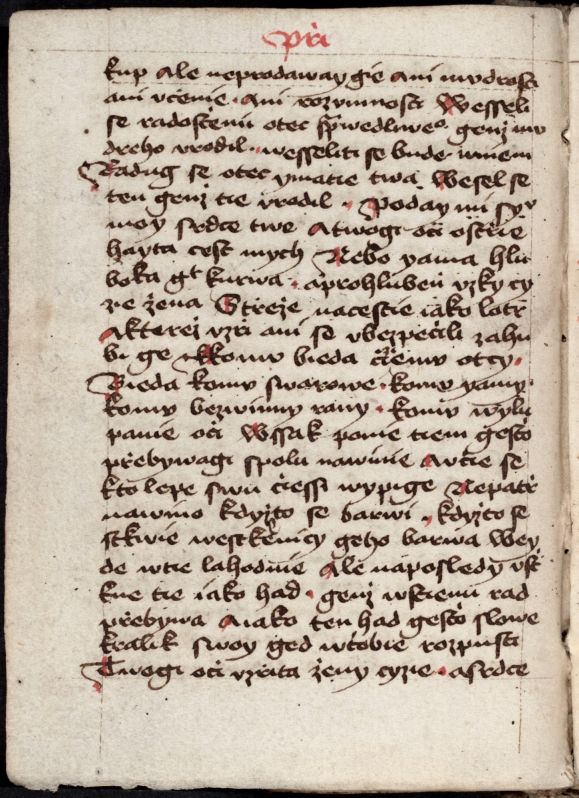 při
kup ale neprodaway gie ani mudrosti
ani včenie · ani rozumnosti Wesseli
se radostenū otec sp̄wedliweº genž mu
dreho vrodil · wesseliti se bude wniem
Radug se otec ymatie twa Wesel se
ten genž tie vrodil · Poday mi sy
moy srdce twe Atwogi oči ostřie
hayta cest mych Nebo yama hlu
boka gt kurwa · aprohlubeň vzky cy
zie žena Střeže nacestie iako lotr
Akterež vzři ani se vbezpečili zahu
bi ge Komu bieda čiemu otcy ·
Bieda komu swarowe · komu yamy ·
komu bezwinny rany · komu wylu
panie oči Wssak ponie tiem gešto
přebywagi spolu nawinie Aučie se
kto lepe swu čiessi wypige Nepatř
nawino kdyžto se barwi · kdyžto se
stkwie westkěnicy geho barwa Wey
de wtie lahodnie Ale naposledy všt
kne tie iako had · genž wstienu rad
přebywa Aiako ten had gešto slowe
kralik swoy ged wtobie rozpusti
Twogi oči vzřita ženy cyzie · asrdce